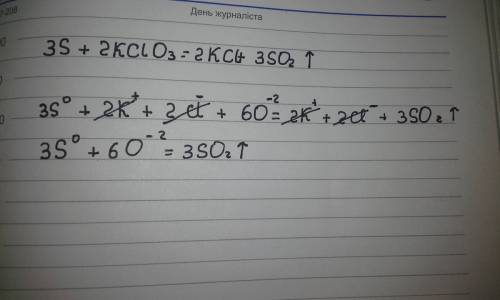 0-208
День журналіств
3S + 2KClO₃ = 2KCl + 3SO₂ ↑
3S⁰ + 2K⁺ + 2Cl⁻ + 6O⁻² = 2K⁺ + 2Cl⁻ + 3SO₂ ↑
3S⁰ + 6O⁻² = 3SO₂ ↑